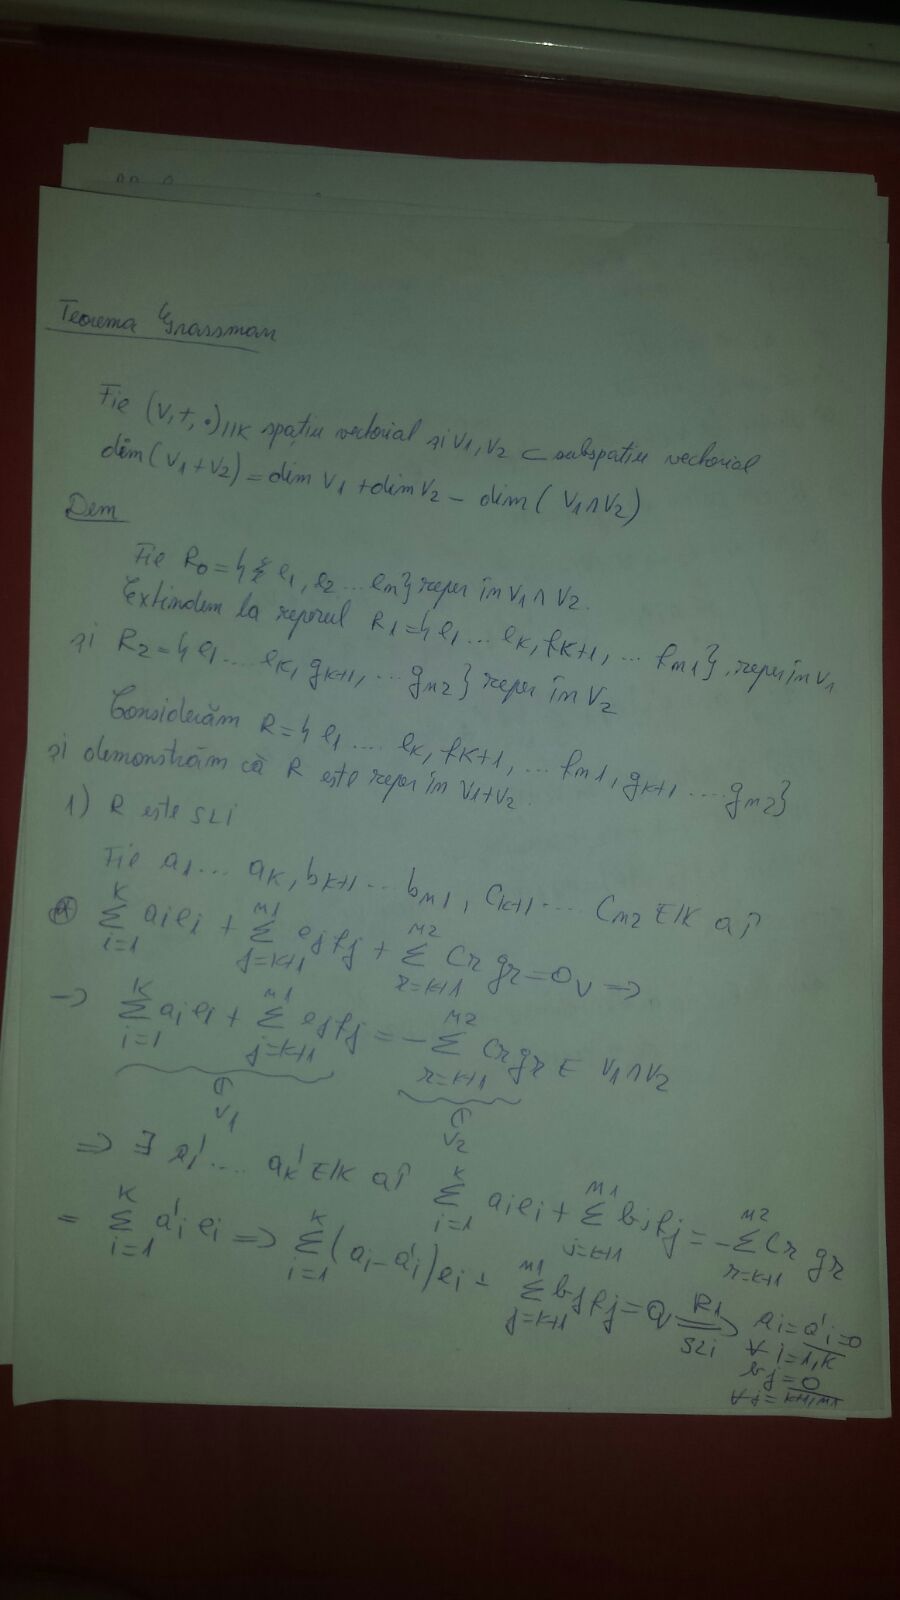 Teorema Grassman
Fie (V,+,·)|IK spațiu vectorial și V1,V2 ⊂ subspațiu vectorial
dim(V1+V2)=dim V1+dim V2 - dim(V1∩V2)
Dem
Fie R0={e1,e2...en} reper în V1∩V2.
Extindem la reperul R1={e1...ek,fk+1,...fm1}, reper în V1
și R2={e1...ek,gk+1,...gm2} reper în V2
Considerăm R={e1....ek,fk+1,...fm1,gk+1....gm2}
și demonstrăm că R este reper în V1+V2.
1) R este SLi
Fie a1...ak,bk+1...bm1,ck+1....cm2 ∈ IK aî
∑_{i=1}^{k} aiei + ∑_{j=k+1}^{m1} ejfj + ∑_{r=k+1}^{m2} Cr gr=0v ⇒
→ ∑_{i=1}^{k} aiei + ∑_{j=k+1}^{m1} ejfj = -∑_{r=k+1}^{m2} Crgr ∈ V1∩V2
∈ V1 ∈ V2
⇒ ∃ a1'.... ak' ∈ IK aî ∑_{i=1}^{k} aiei + ∑_{j=k+1}^{m1} bjfj = -∑_{r=k+1}^{m2} Cr gr
= ∑_{i=1}^{k} a'i ei ⇒ ∑_{i=1}^{k} (ai-a'i)ei + ∑_{j=k+1}^{m1} bjfj=0v ⇒ R1 SLi ai=a'i=0
∀ i=1,k
bj=0
∀j=k+1,m1